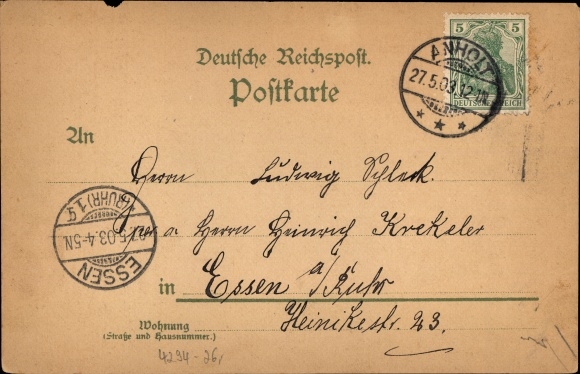 Deutsche Reichspost.
Postkarte
5 5
DEUTSCHES REICH
ANHOLT
27.5.03.12-1N
* * *
An
Herrn Ludwig Schleck.
p. a Herrn Heinrich Krekeler
in Essen a/Ruhr
Heinikestr. 23.
ESSEN
(RUHR) 1.
27.5.03.4-5N
Wohnung
(Straße und Hausnummer.)
4294-26,